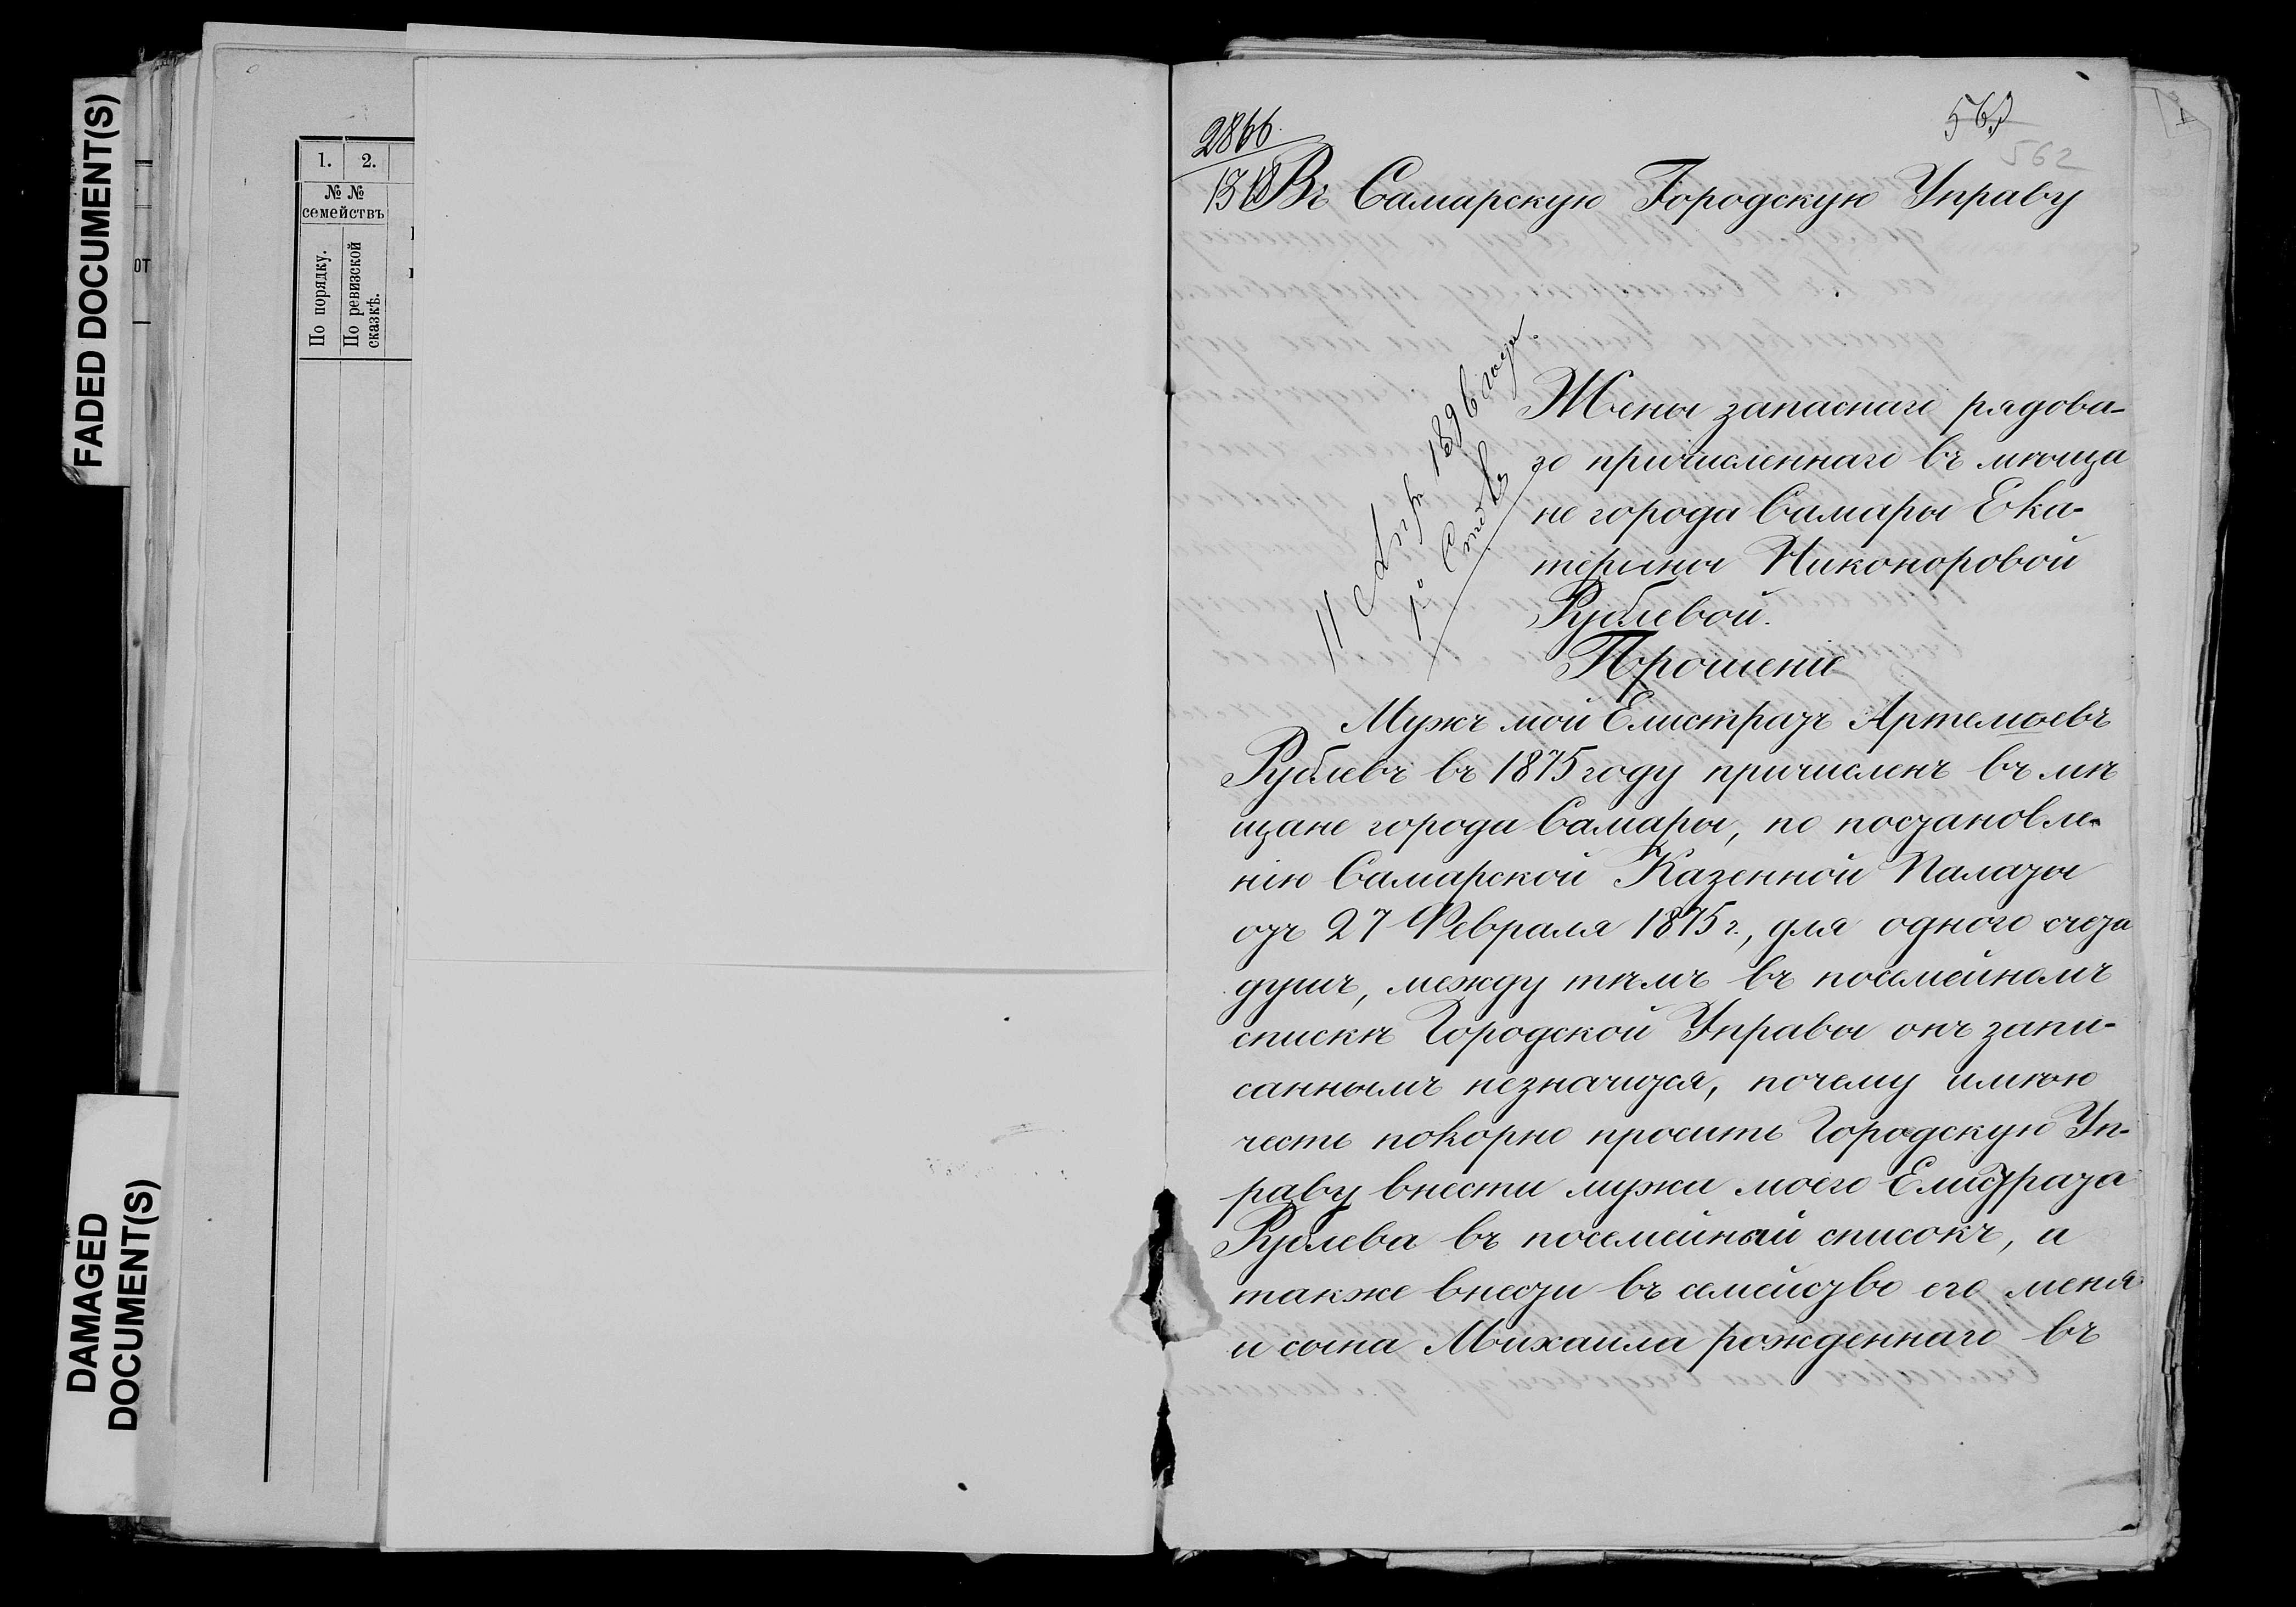 FADED DOCUMENT(S)
DAMAGED
DOCUMENT(S)
1. 2.
№ №
семействъ
По порядку.
По ревизской
сказкѣ.
ОТ
2866
1318
562
Въ Самарскую Городскую Управу
11 Апр. 1896 года
Жены запаснаго рядова-
го причисленнаго въ мѣща
не города Самары Ека-
терины Никоноровой
Рублевой.
Прошеніе
Мужъ мой Елистратъ Артемьевъ
Рублевъ въ 1875 году причисленъ въ мѣ
щане города Самары, по постановле-
нію Самарской Казенной Палаты
отъ 27 Февраля 1875 г., для одного счета
душъ, между тѣмъ въ посемейномъ
спискѣ Городской Управы онъ запи-
саннымъ незначится, почему имѣю
честь покорно просить Городскую Уп-
раву внести мужа моего Елистрата
Рублева въ посемейный списокъ, а
также внести въ семейство его меня
и сына Михаила рожденнаго въ